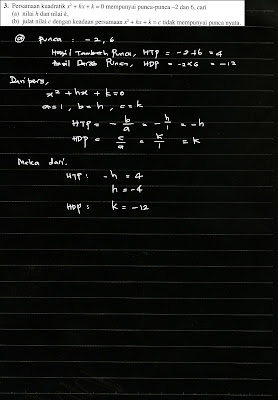 3. Persamaan kuadratik x² + hx + k = 0 mempunyai punca-punca −2 dan 6, cari
(a) nilai h dan nilai k,
(b) julat nilai c dengan keadaan persamaan x² + hx + k = c tidak mempunyai punca nyata.
(a) Punca : -2, 6
Hasil Tambah Punca, HTP = -2+6 = 4
Hasil Darab Punca, HDP = -2×6 = -12
Dari pers,
x² + hx + k = 0
a=1, b=h, c=k
HTP = -b/a = -h/1 = -h
HDP = c/a = k/1 = k
Maka dari.
HTP : -h = 4
h = -4
HDP : k = -12